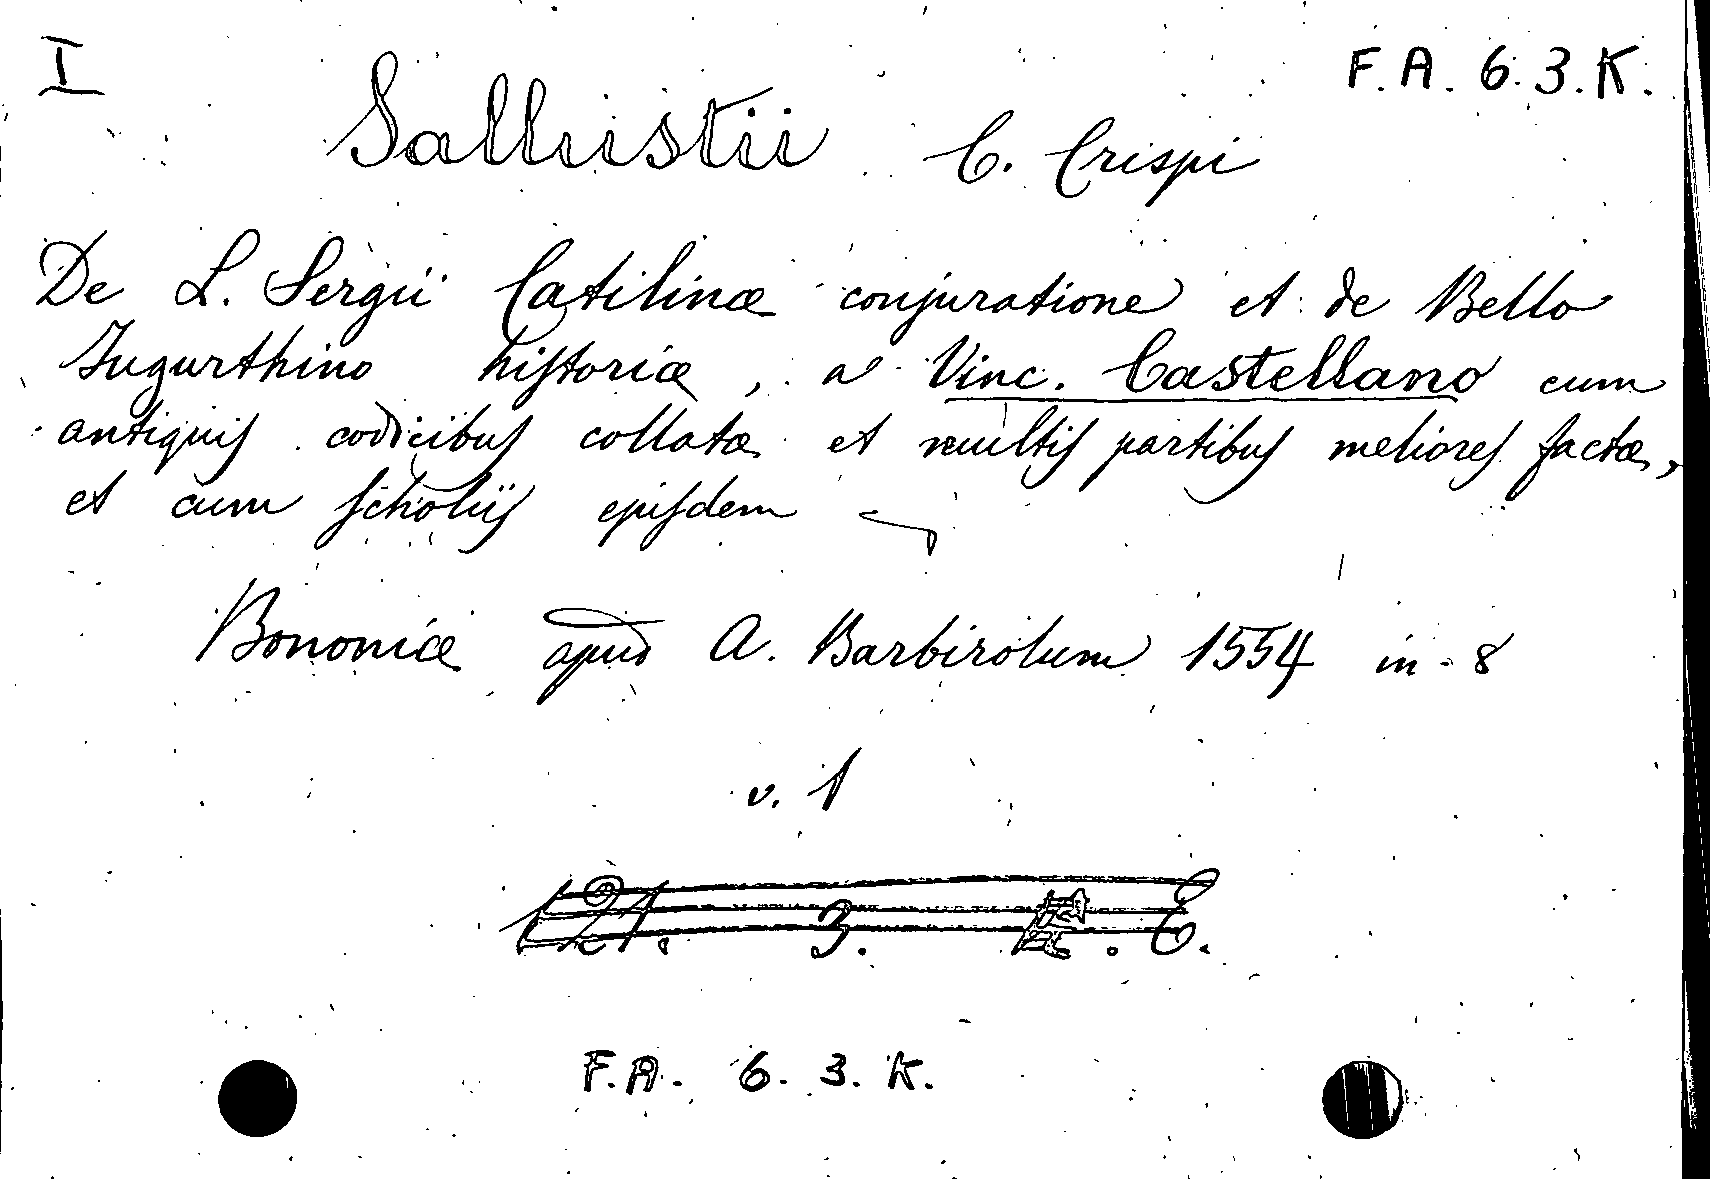 I
F. A. 6. 3. K.
Sallustii C. Crispi
De L. Sergii Catilinæ conjuratione et de Bello
Jugurthino hiſtoriæ, a Vinc. Castellano cum
antiquiſ codicibuſ collatæ et multiſ partibuſ melioreſ factæ,
et cum ſcholiiſ ejuſdem
Bononiæ apud A. Barbirolum 1554 in-8
v. 1
121. 3. E.
F. A. 6. 3. K.